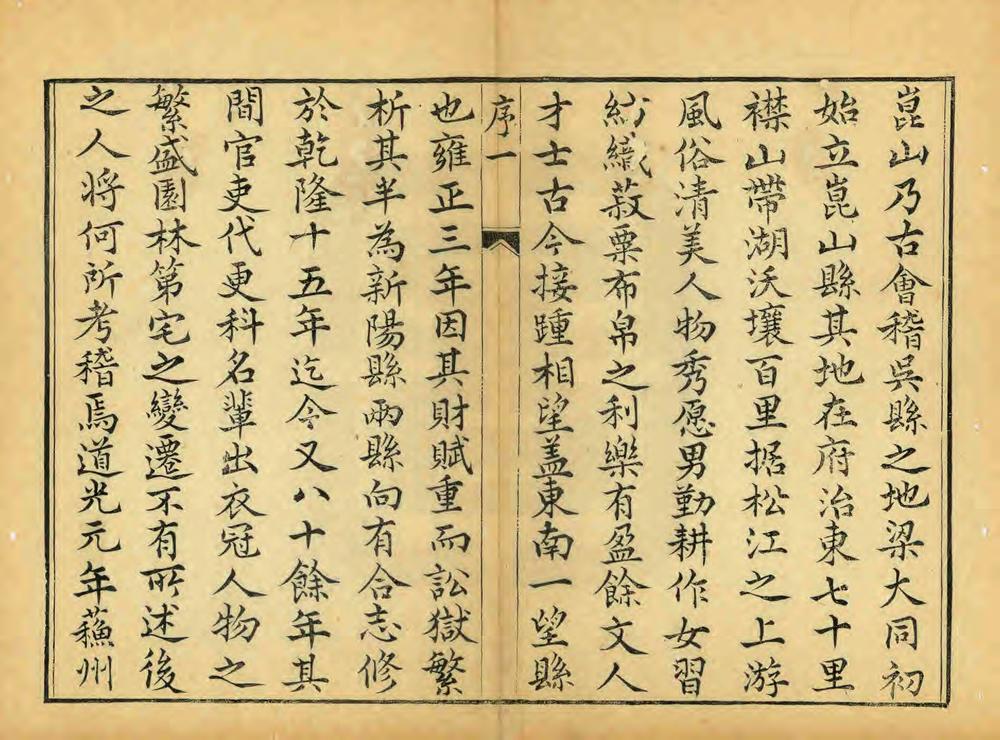 崑山乃古會稽吳縣之地梁大同初
始立崑山縣其地在府治東七十里
襟山帶湖沃壤百里据松江之上游
風俗清美人物秀愿男勤耕作女習
紡織菽粟布帛之利樂有盈餘文人
才士古今接踵相望盖東南一望縣
序一
也雍正三年因其財賦重而訟獄繁
析其半為新陽縣兩縣向有合志修
於乾隆十五年迄今又八十餘年其
間官吏代更科名輩出衣冠人物之
繁盛園林第宅之變遷不有所述後
之人將何所考稽焉道光元年蘓州